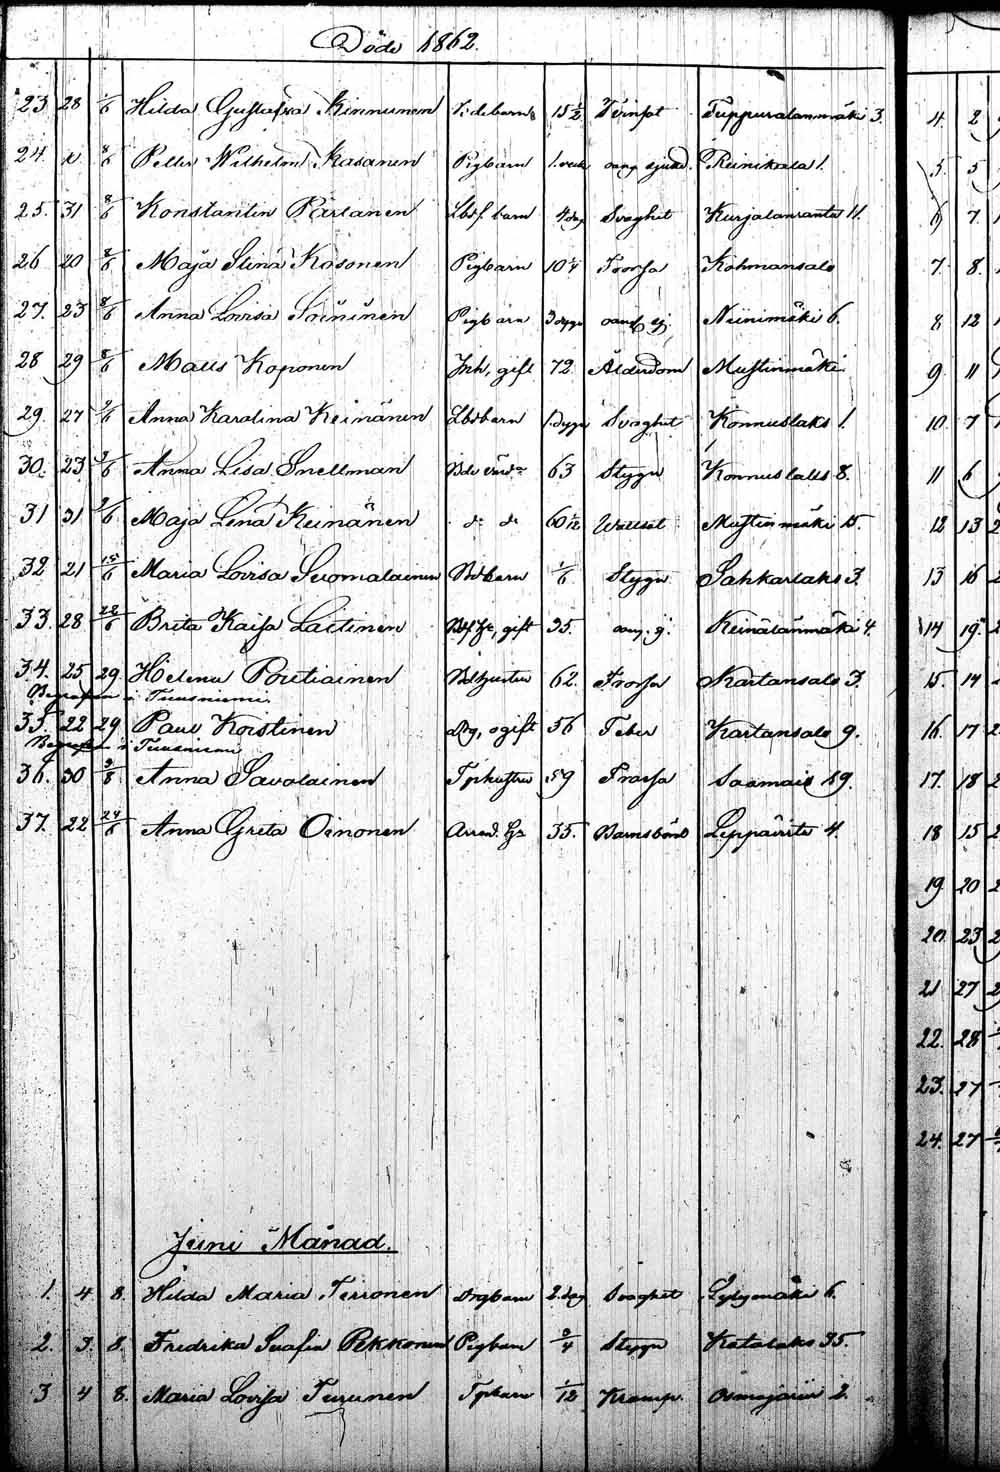 Döde 1862.
23 28 1/6 Hilda Gustafva Kinnunen 15 1/2 Tvinsot Tuppuralanmäki 3.
24. 8/6 Petter Wilhelm Kasanen Pigbarn 1 veck oang. sjukd. Reinikkala 1.
25. 31 8/6 Konstantin Partanen Lbdf barn 4 dag Svaghet Kurjalanranta 11.
26 20 8/6 Maja Stina Kosonen Pigbarn 10 1/4 Frossa Kohmansalo
27. 23 8/6 Anna Lovisa Soininen Pigbarn 3 dygn Niinimäki 6.
28 29 8/6 Matts Koponen Inh, gift 72. Ålderdom Mustinmäki
29. 27 9/6 Anna Karolina Keinänen Lbdbarn 1 dygn Svaghet Konnuslaks 1.
30. 23 9/6 Anna Lisa Snellman 63 Stygn Konnuslaks 8.
31 31 9/6 Maja Lena Keinänen do do 60 1/12 Wattsot Mustinmäki 15.
32 21 15/6 Maria Lovisa Suomalainen Bdbarn 1/6 Stygn Sahkarlaks 3.
33. 28 22/6 Brita Kaisa Laitinen gift 35. oang. Keinälänmäki 4.
34. 25 29. Helena Poutiainen Bdhustru 62. Frossa Kartansalo 3.
Begrafven i Tuusniemi.
35. 22 29 Paul Koistinen Drg, ogift 56 Feber Kartansalo 9.
Begrafven i Tuusniemi
36. 30 3/8 Anna Savolainen Tphustru 59 Frossa Saamais 19.
37. 22 24/6 Anna Greta Oinonen Arrend. 35. Barnsbörd Leppävirta 4.
Juni Månad.
1. 4 8. Hilda Maria Tirronen Drgbarn 2. dag Svaghet Lytymäki 6.
2. 3. 8. Fredrika Serafia Pekkonen Pigbarn 3/4 Stygn Kotalaks 35.
3 4 8. Maria Lovisa Turunen Tpbarn 1/12 Kramp. Osmajärvi 2.
4. 2
5 5
6 7.
7. 8.
8 12
9. 11
10. 7
11 6
12 13
13 16
14 19
15. 14
16. 17
17. 18
18 15
19. 20
20. 23
21 27
22. 28
23. 27
24. 27